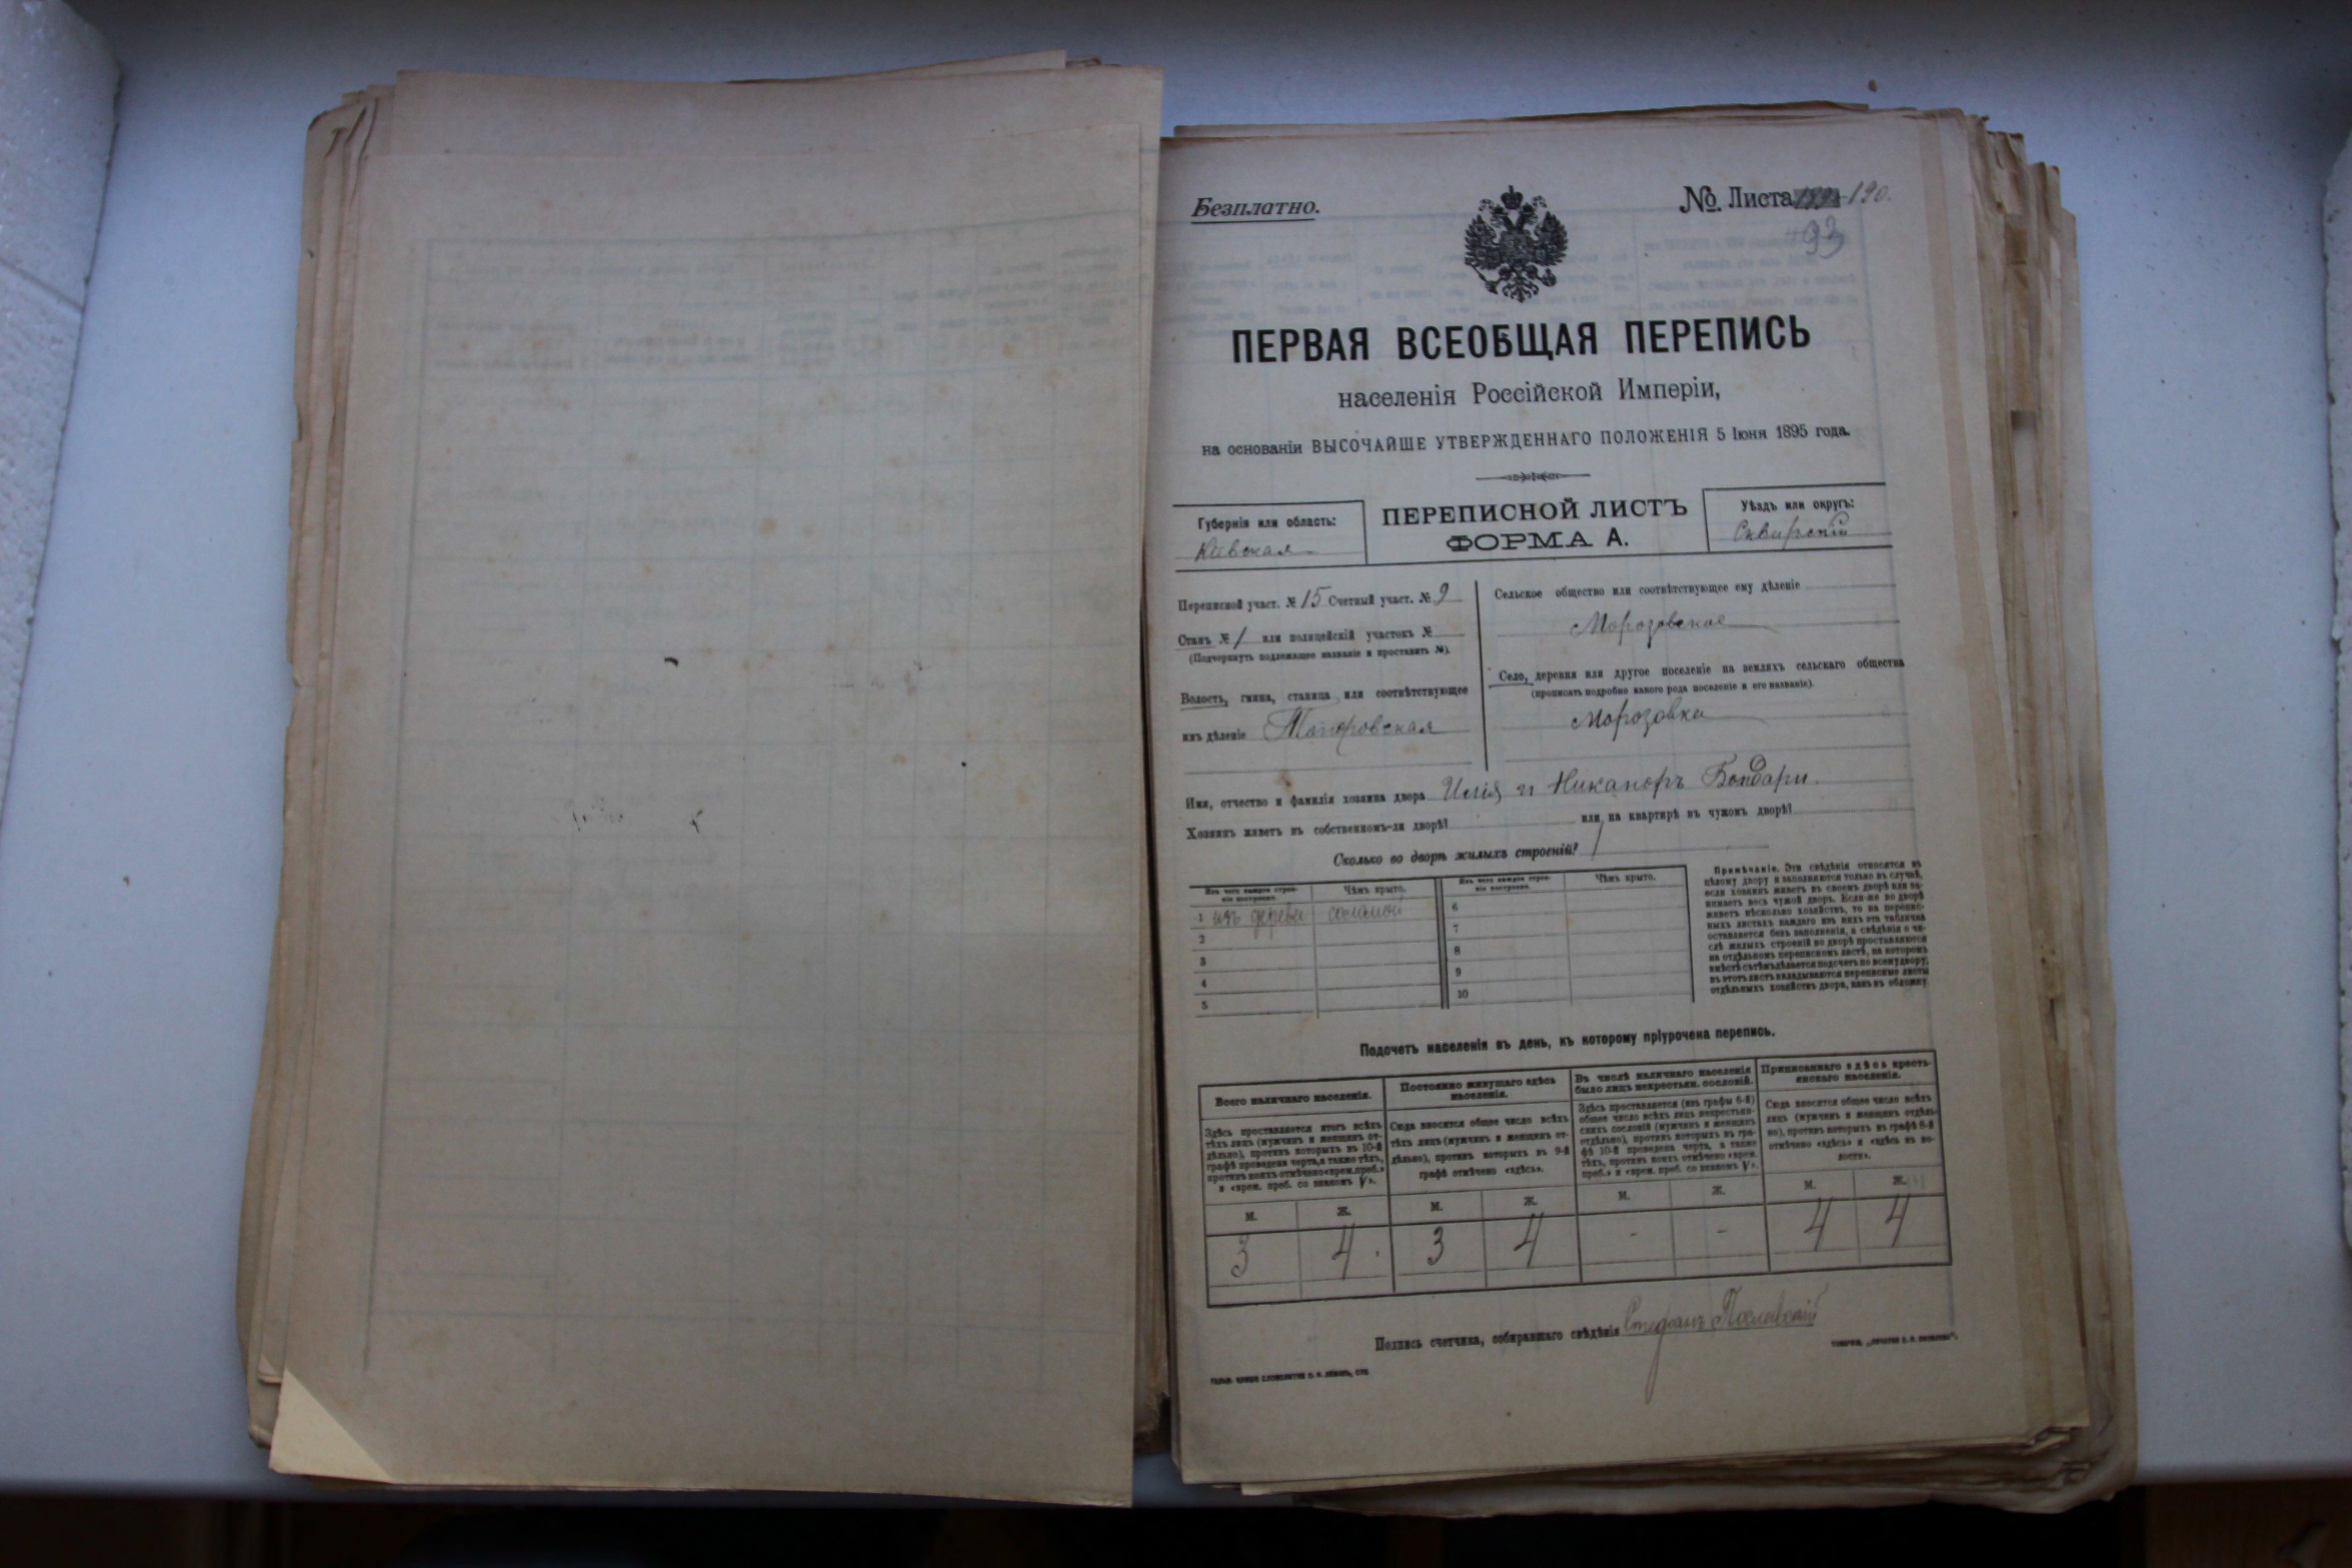 Безплатно.
№ Листа 190.
93
ПЕРВАЯ ВСЕОБЩАЯ ПЕРЕПИСЬ
населенія Россійской Имперіи,
на основаніи ВЫСОЧАЙШЕ УТВЕРЖДЕННАГО ПОЛОЖЕНІЯ 5 Іюня 1895 года.
Губернія или область:
Кіевская
ПЕРЕПИСНОЙ ЛИСТЪ
ФОРМА А.
Уѣздъ или округъ:
Сквирскій
Переписной участ. № 15 Счетный участ. № 9
Станъ № 1 или полицейскій участокъ №
(Подчеркнуть подлежащее названіе и проставить №).
Волость, гмина, станица или соотвѣтствующее
имъ дѣленіе
Сельское общество или соотвѣтствующее ему дѣленіе
Морозовское
Село, деревня или другое поселеніе на земляхъ сельскаго общества
(прописать подробно какого рода поселеніе и его названіе).
Морозовка
Имя, отчество и фамилія хозяина двора Илія и Никаноръ Бондари.
Хозяинъ живетъ въ собственномъ-ли дворѣ? или на квартирѣ въ чужомъ дворѣ?
Сколько во дворѣ жилыхъ строеній? 1
Изъ чего каждое строеніе построено. Чѣмъ крыто. Изъ чего каждое строеніе построено. Чѣмъ крыто.
1 изъ дерева соломой 6
2 7
3 8
4 9
5 10
Примѣчаніе. Эти свѣдѣнія относятся къ
цѣлому двору и заполняются только въ случаѣ,
если хозяинъ живетъ въ своемъ дворѣ или за-
нимаетъ весь чужой дворъ. Если-же во дворѣ
живетъ нѣсколько хозяйствъ, то на перепис-
ныхъ листахъ каждаго изъ нихъ эта табличка
оставляется безъ заполненія, а свѣдѣнія о чи-
слѣ жилыхъ строеній во дворѣ проставляются
на отдѣльномъ переписномъ листѣ, на которомъ
вмѣстѣ съ тѣмъ дѣлается подсчетъ по всему двору;
въ этотъ листъ вкладываются переписные листы
отдѣльныхъ хозяйствъ двора, какъ въ обложку
Подсчетъ населенія въ день, къ которому пріурочена перепись.
Всего наличнаго населенія.
Здѣсь проставляется итогъ всѣхъ
тѣхъ лицъ (мужчинъ и женщинъ от-
дѣльно), противъ которыхъ въ 10-й
графѣ проведена черта, а также тѣхъ,
противъ коихъ отмѣчено «врем. преб.»
и «врем. преб. со знакомъ V».
Постоянно живущаго здѣсь
населенія.
Сюда вносится общее число всѣхъ
тѣхъ лицъ (мужчинъ и женщинъ от-
дѣльно), противъ которыхъ въ 9-й
графѣ отмѣчено «здѣсь».
Въ числѣ наличнаго населенія
было лицъ некрестьян. сословій.
Здѣсь проставляется (изъ графы 6-й)
общее число всѣхъ лицъ некрестьян-
скихъ сословій (мужчинъ и женщинъ
отдѣльно), противъ которыхъ въ гра-
фѣ 10-й проведена черта, а также
тѣхъ, противъ коихъ отмѣчено «врем.
преб.» и «врем. преб. со знакомъ V».
Приписаннаго здѣсь кресть-
янскаго населенія.
Сюда вносится общее число всѣхъ
лицъ (мужчинъ и женщинъ отдѣль-
но), противъ которыхъ въ графѣ 8-й
отмѣчено «здѣсь» и «здѣсь въ во-
лости».
М. Ж. М. Ж. М. Ж. М. Ж.
3 4 3 4 - - 4 4
Подпись счетчика, собиравшаго свѣдѣнія Стефанъ